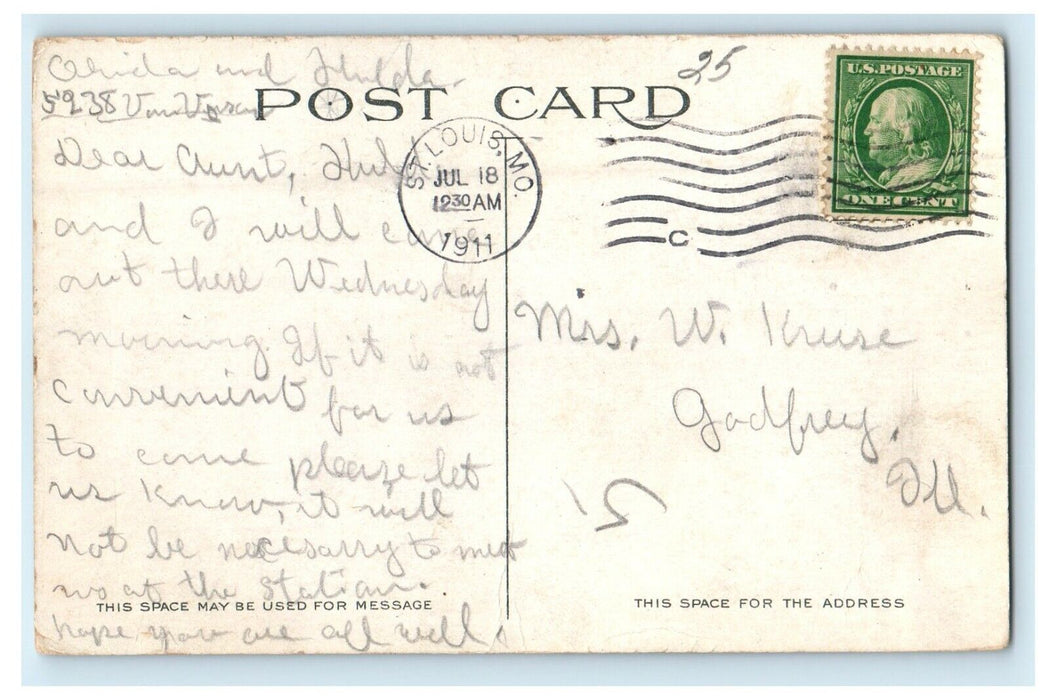 and Hulda
25
5938 Van
POST CARD
U.S. POSTAGE
ONE CENT
ST. LOUIS, MO.
JUL 18
1230 AM
1911
C
Dear Aunt, Hulda
and I will come
out there Wednesday
morning. If it is not
convenient for us
to come please let
us know, it will
not be necesarry to meet
us at the station.
hope you are all well.
Mrs. W. Kruse
Godfrey,
Ill.
THIS SPACE MAY BE USED FOR MESSAGE
THIS SPACE FOR THE ADDRESS